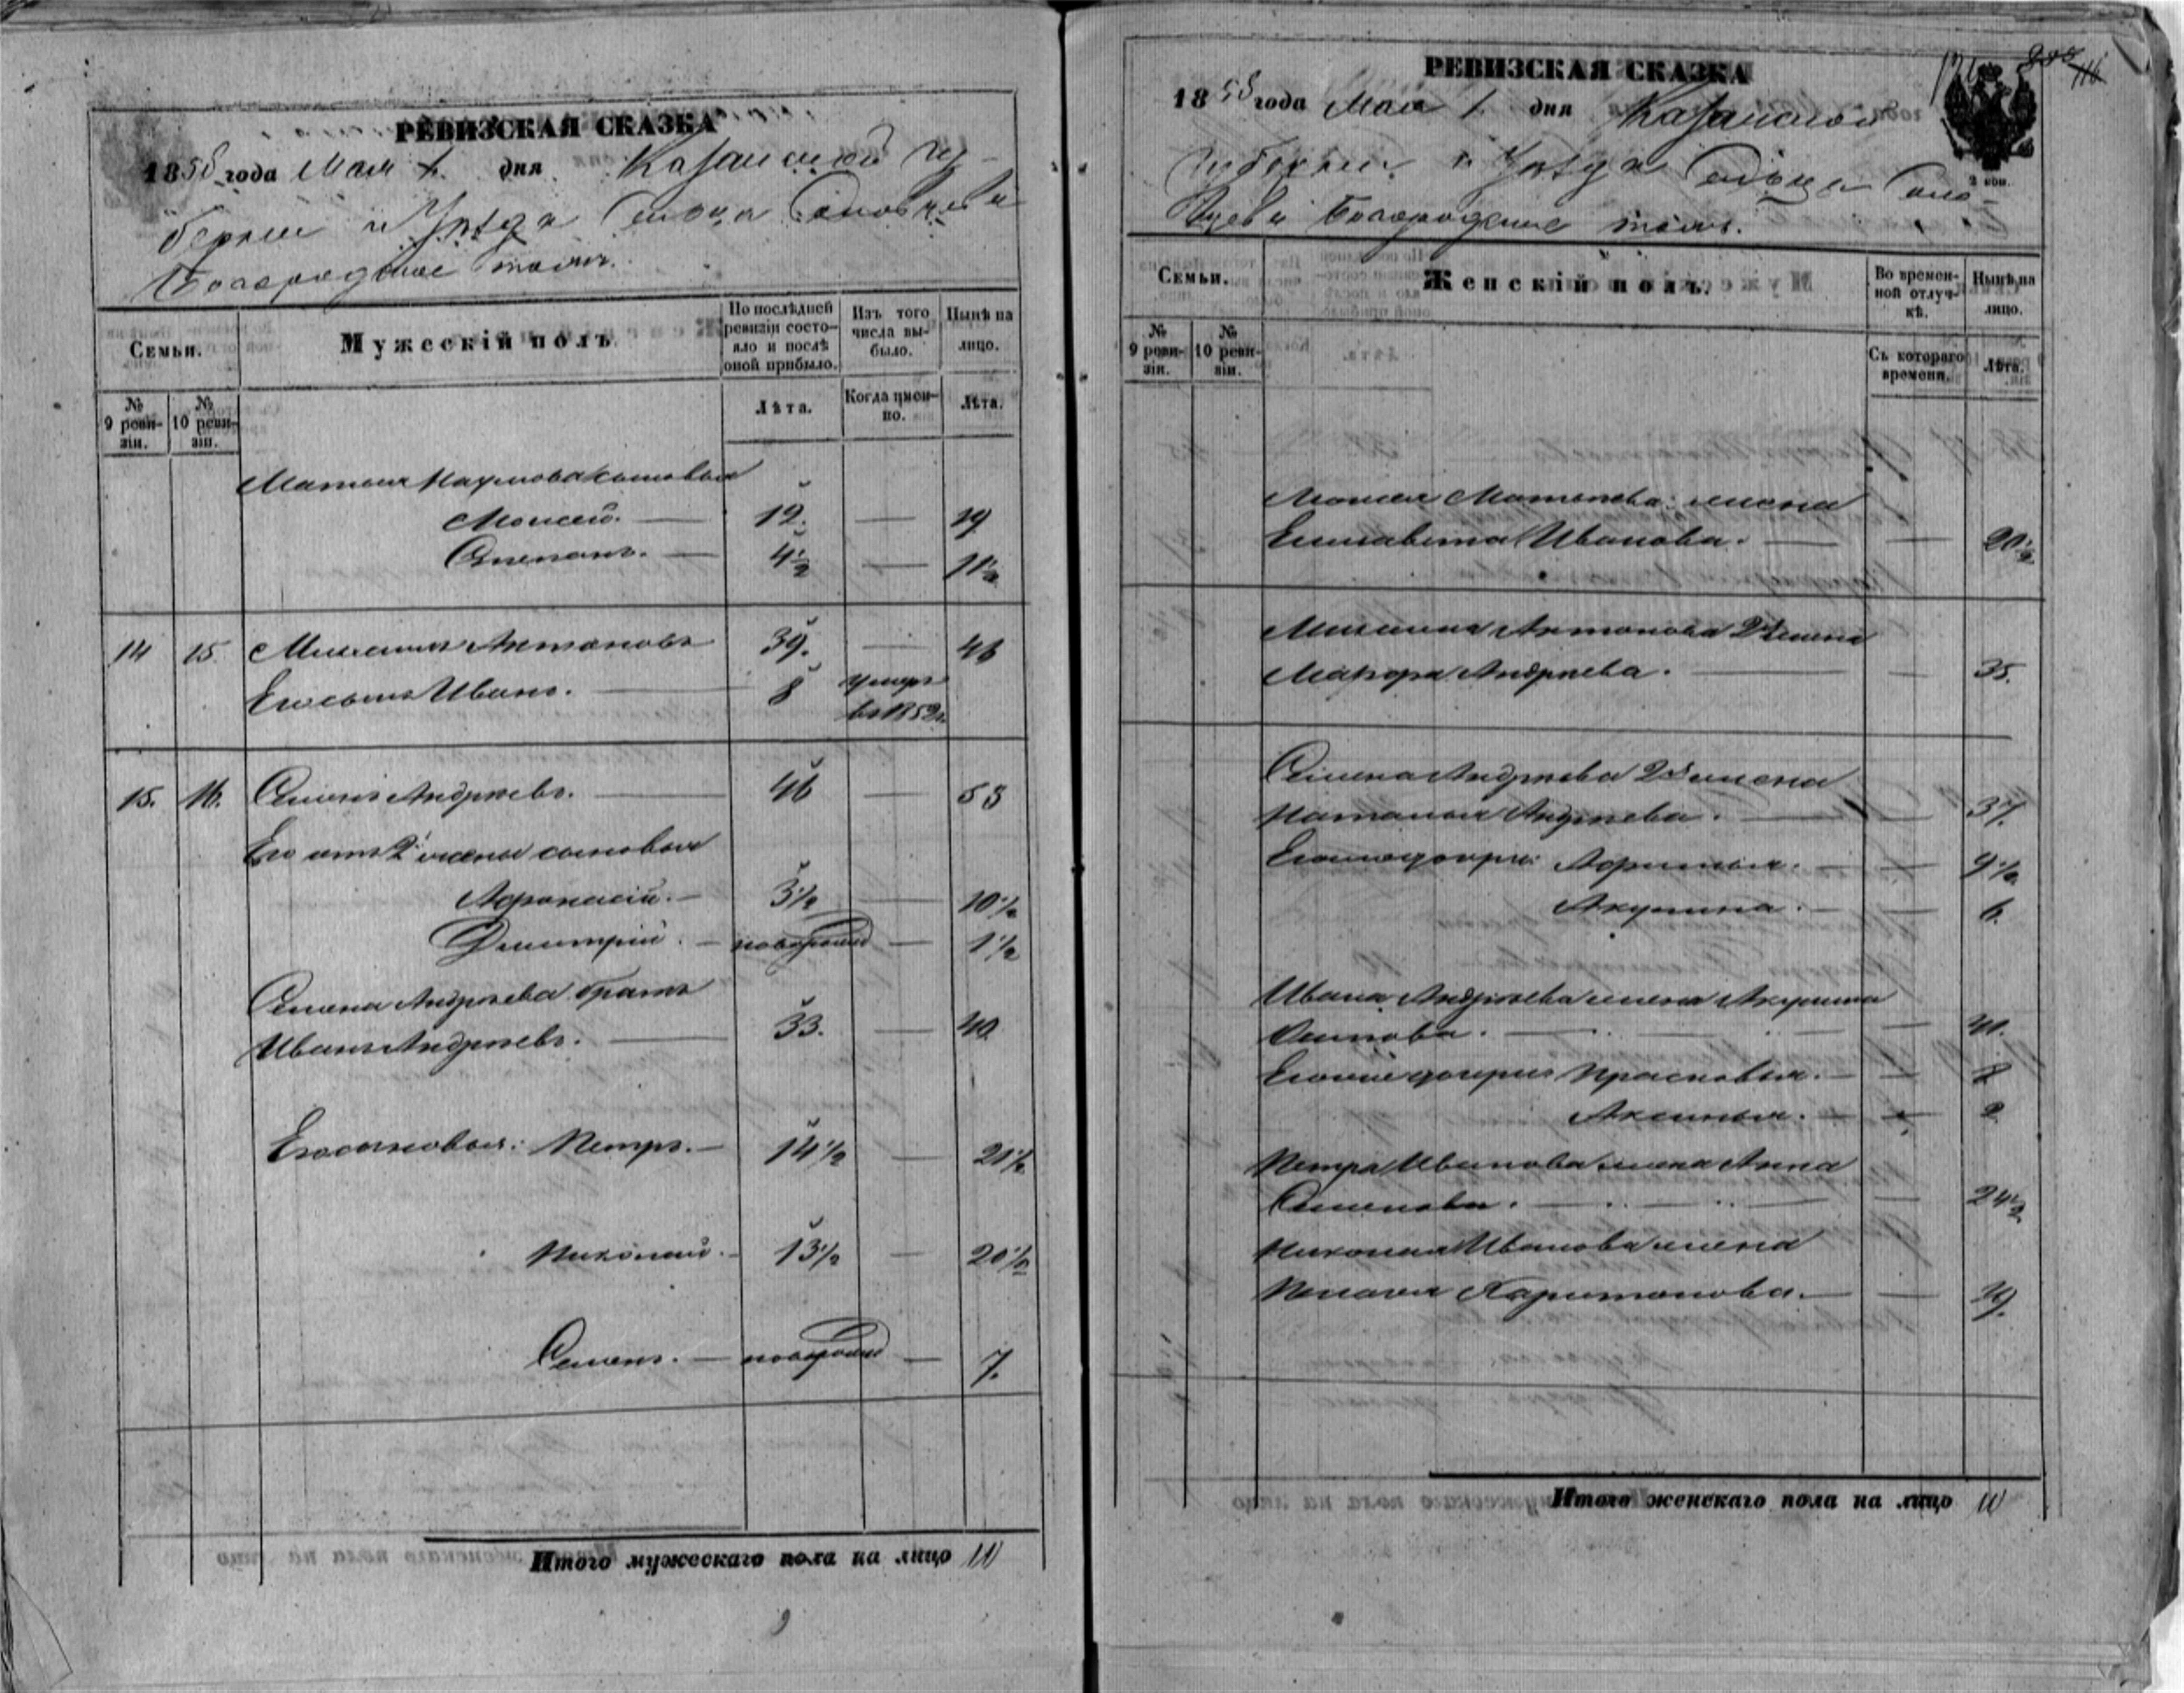 РЕВИЗСКАЯ СКАЗКА
1858 года Мая 1. дня Казанской Гу-
берніи и Уѣзда Сельца
Богородское тожъ.
Семьи.
Мужескій полъ.
По послѣдней ревизіи состо-яло и послѣ оной прибыло.
Изъ того числа вы-было.
Нынѣ на лицо.
№ 9 реви-зіи.
№ 10 реви-зіи.
Лѣта.
Когда имен-но.
Лѣта.
Матвея Наумова сыновья
Моисей. — 12. — 19
Степанъ. — 4½ — 11½
14 15. Антоновъ 39. — 46
Его сынъ Иванъ. — 8 умеръ въ 1852г.
15. 16. Семенъ Андреевъ. — 46 — 53
Его отъ 2й жены сыновья
Афонасій. — 3½ — 10½
Дмитрій. — новорожд — 1½
Семена Андреева братъ
Иванъ Андреевъ. — 33. — 40
Его сыновья: Петръ. — 14½ — 21½
Николай. — 13½ — 20½
Семенъ. — новорожд — 7.
Итого мужескаго пола на лицо 10
РЕВИЗСКАЯ СКАЗКА
1858 года Мая 1. дня Казанской
Губерніи и Уѣзда Сельца
Богородское тожъ.
2 коп.
Семьи.
Женскій полъ.
Во времен-ной отлуч-кѣ.
Нынѣ на лицо.
№ 9 реви-зіи.
№ 10 реви-зіи.
Съ котораго времени.
Лѣта.
Моисея Матвеева жена
Елизавета Иванова. — — 20½
Антонова 2я жена
Андреева. — — 35.
Семена Андреева 2я жена
Наталья Андреева. — — 37.
Его дочери: — — 9½
Акулина. — — 6.
Ивана Андреева жена Акулина
Осипова. — — 41.
дочери Прасковья. — — 8
Аксинья. — — 2
Петра Иванова жена Анна
Семенова. — — 24½
Николая Иванова жена
Пелагея Харитонова. — — 19.
Итого женскаго пола на лицо 10